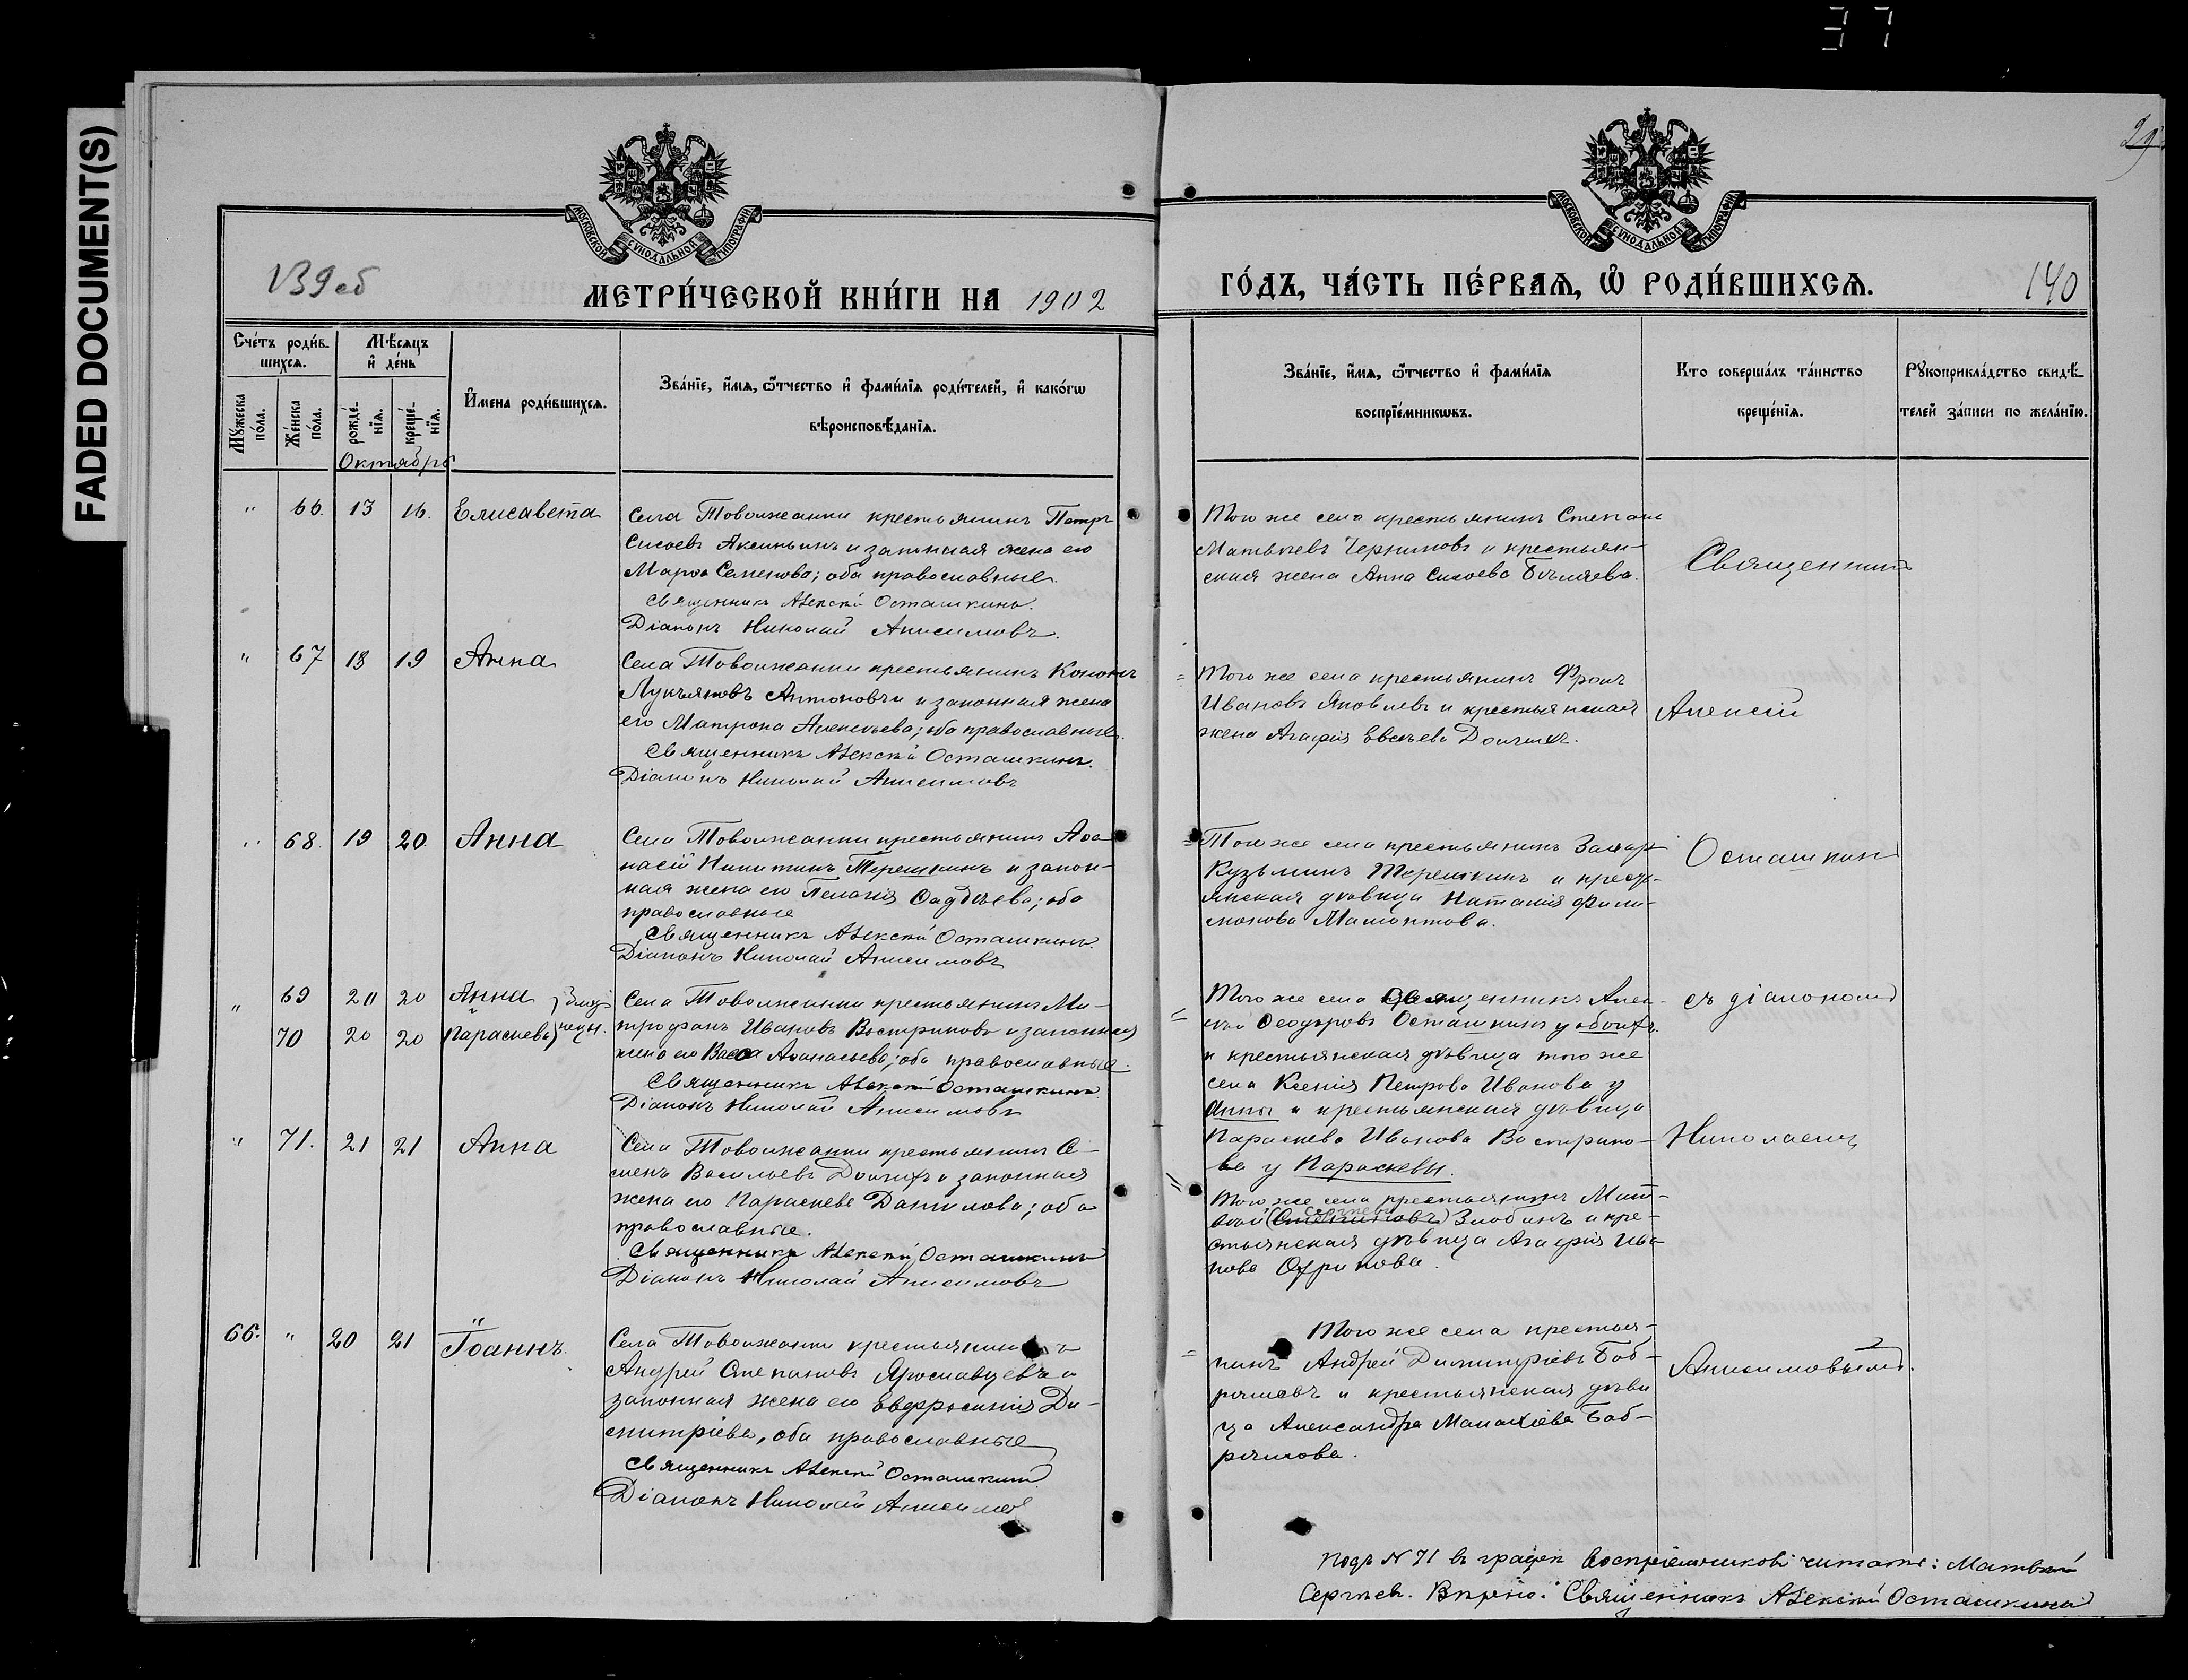 37
FADED DOCUMENT(S)
29
МОСКОВСКОЙ СѴНОДАЛЬНОЙ ТИПОГРАФІИ
МОСКОВСКОЙ СѴНОДАЛЬНОЙ ТИПОГРАФІИ
139об
МЕТРИ́ЧЕСКОЙ КНИ́ГИ НА 1902
ГО́ДЪ, ЧА́СТЬ ПЕ́РВАѦ, Ѡ҆ РОДИ́ВШИХСѦ.
140
Сче́тъ роди́в-
шихсѧ.
Мѣ́сѧцъ
и҆ де́нь
Мꙋ́жеска
по́ла.
Же́нска
по́ла.
рожде́-
нїѧ.
креще́-
нїѧ.
Октябрь
И҆мена роди́вшихсѧ.
Зва́нїе, и҆́мѧ, ѻ҆́тчество и҆ фами́лїѧ роди́телей, и҆ како́гѡ
вѣроисповѣ́данїѧ.
Зва́нїе, и҆́мѧ, ѻ҆́тчество и҆ фами́лїѧ
воспрїе́мникѡвъ.
Кто соверша́лъ та́инство
креще́нїѧ.
Рꙋкоприкла́дство свидѣ́-
телей за́писи по жела́нїю.
" 66. 13 16. Елисавета
Села Товолжанки крестьянинъ Петръ
Сисоевъ Аксиньинъ и законная жена его
Марѳа Семенова; оба православные.
Священникъ Алексій Осташкинъ.
Діаконъ Николай Анисимовъ.
Того же села крестьянинъ Степанъ
Матвѣевъ Черниковъ и крестьян-
ская жена Анна Сисоева Бѣляева.
Священникъ
" 67 18 19 Анна
Села Товолжанки крестьянинъ Кононъ
Лукьяновъ Антоновъ и законная жена
его Матрона Алексѣева; оба православные.
Священникъ Алексій Осташкинъ.
Діаконъ Николай Анисимовъ
Того же села крестьянинъ Фролъ
Ивановъ Яковлевъ и крестьянская
жена Агафія Евсѣева
Алексій
" 68. 19 20. Анна
Села Товолжанки крестьянинъ Аѳа-
насій Никитинъ Терешкинъ и закон-
ная жена его Пелагія Ѳаддѣева; оба
православные
Священникъ Алексій Осташкинъ.
Діаконъ Николай Анисимовъ
Того же села крестьянинъ Захаръ
Кузьминъ Терешкинъ и кресть-
янская дѣвица Наталія Фили-
монова Мамонтова.
Осташкинъ
" 69 20 20 Анна } близ-
70 20 20 Параскева } нецы.
Села Товолжанки крестьянинъ Ми-
трофанъ Ивановъ Востриковъ и законная
жена его Васса Аѳанасьева; оба православные.
Священникъ Алексій Осташкинъ
Діаконъ Николай Анисимовъ
Того же села священникъ Алек-
сій Ѳеодоровъ Осташкинъ у обоихъ
и крестьянская дѣвица того же
села Ксенія Петрова Иванова у
Анны и крестьянская дѣвица
Параскева Иванова Вострико-
ва у Параскевы.
съ діакономъ
" 71. 21 21 Анна
Села Товолжанки крестьянинъ Се-
менъ Васильевъ Долгихъ и законная
жена его Параскева Данилова; оба
православные.
Священникъ Алексій Осташкинъ
Діаконъ Николай Анисимовъ
Того же села крестьянинъ Мат-
вѣй Сергѣевъ Злобинъ и кре-
стьянская дѣвица Агафія Ива-
нова
Николаемъ
66. " 20 21 Іоаннъ.
Села Товолжанки крестьянинъ
Андрей Степановъ Ярославцевъ и
законная жена его Евфросинія Ди-
митріева, оба православные
Священникъ Алексій Осташкинъ
Діаконъ Николай Анисимовъ
Того же села крестья-
нинъ Андрей Димитріевъ Боб-
рышевъ и крестьянская дѣви-
ца Александра Малахіева Боб-
рышова.
Анисимовымъ.
Подъ N 71 въ графѣ воспріемниковъ читать: Матвѣй
Сергѣев. Вѣрно: Священникъ Алексій Осташкинъ